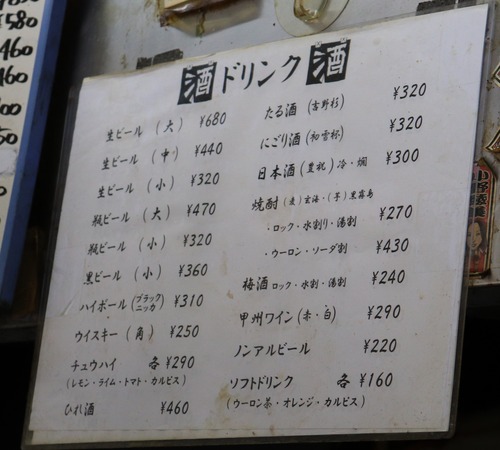 酒 ドリンク 酒
生ビール (大) ¥680
生ビール (中) ¥440
生ビール (小) ¥320
瓶ビール (大) ¥470
瓶ビール (小) ¥320
黒ビール (小) ¥360
ハイボール (ブラックニッカ) ¥310
ウイスキー (角) ¥250
チュウハイ 各¥290
(レモン・ライム・トマト・カルピス)
ひれ酒 ¥460
たる酒 (吉野杉) ¥320
にごり酒 (和雪杯) ¥320
日本酒 (豊祝) 冷・燗 ¥300
焼酎 (麦) 玄海・(芋) 黒霧島
・ロック・水割り・湯割 ¥270
・ウーロン・ソーダ割 ¥430
梅酒 ロック・水割・湯割 ¥240
甲州ワイン (赤・白) ¥290
ノンアルビール ¥220
ソフトドリンク 各¥160
(ウーロン茶・オレンジ・カルピス)
¥580
460
460